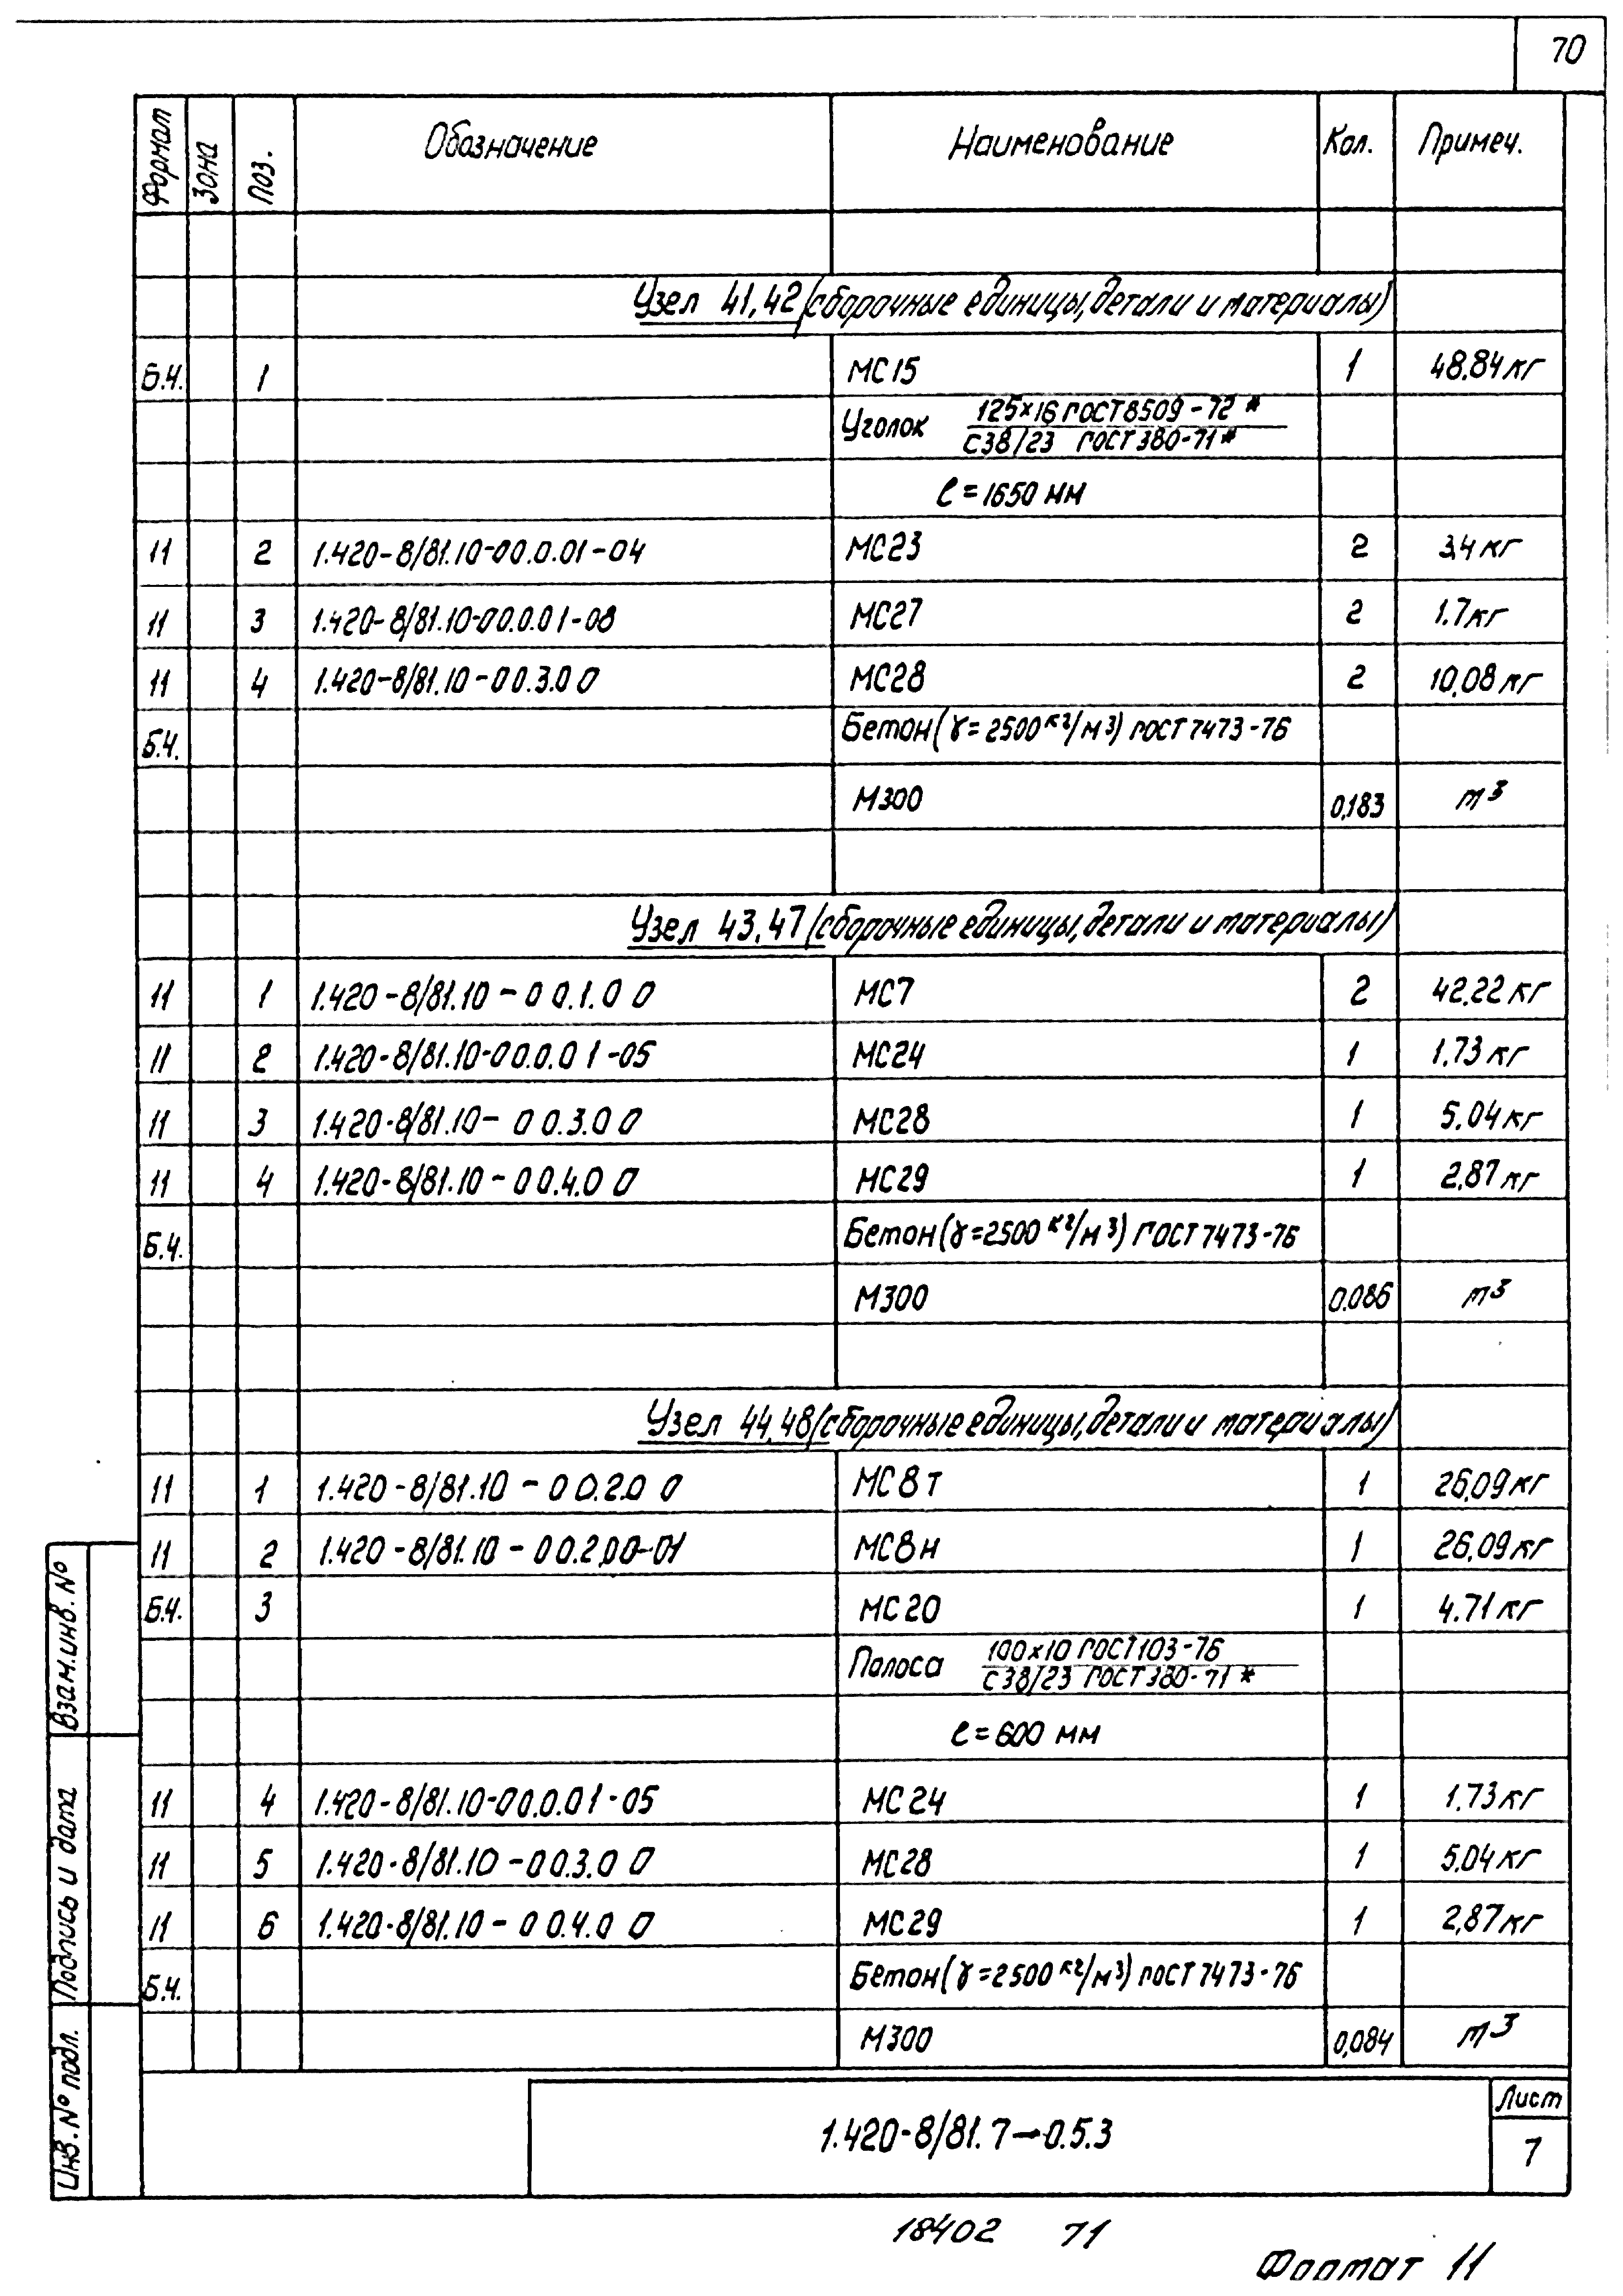 70
Формат Зона Поз. Обозначение Наименование Кол. Примеч.
Узел 41,42 (сборочные единицы, детали и материалы)
Б.Ч. 1 МС15 1 48.84 кг
Уголок 125×16 ГОСТ 8509-72*
С38/23 ГОСТ 380-71*
ℓ=1650 мм
11 2 1.420-8/81.10-00.0.01-04 МС23 2 3.4 кг
11 3 1.420-8/81.10-00.0.01-08 МС27 2 1.7 кг
11 4 1.420-8/81.10-00.3.00 МС28 2 10,08 кг
Б.Ч. Бетон (γ=2500 кг/м³) ГОСТ 7473-76
М300 0,183 м³
Узел 43,47 (сборочные единицы, детали и материалы)
11 1 1.420-8/81.10-00.1.00 МС7 2 42,22 кг
11 2 1.420-8/81.10-00.0.01-05 МС24 1 1.73 кг
11 3 1.420-8/81.10-00.3.00 МС28 1 5.04 кг
11 4 1.420-8/81.10-00.4.00 МС29 1 2.87 кг
Б.Ч. Бетон (γ=2500 кг/м³) ГОСТ 7473-76
М300 0.086 м³
Узел 44,48 (сборочные единицы, детали и материалы)
11 1 1.420-8/81.10-00.2.00 МС8т 1 26,09 кг
11 2 1.420-8/81.10-00.2.00-01 МС8н 1 26,09 кг
Б.Ч. 3 МС20 1 4.71 кг
Полоса 100×10 ГОСТ 103-76
С38/23 ГОСТ 380-71*
ℓ=600 мм
11 4 1.420-8/81.10-00.0.01-05 МС24 1 1.73 кг
11 5 1.420-8/81.10-00.3.00 МС28 1 5.04 кг
11 6 1.420-8/81.10-00.4.00 МС29 1 2,87 кг
Б.Ч. Бетон (γ=2500 кг/м³) ГОСТ 7473-76
М300 0,084 м³
Взам.инв.№
Подпись и дата
Инв.№ подл.
1.420-8/81.7-0.5.3
Лист
7
18402 71
Формат 11